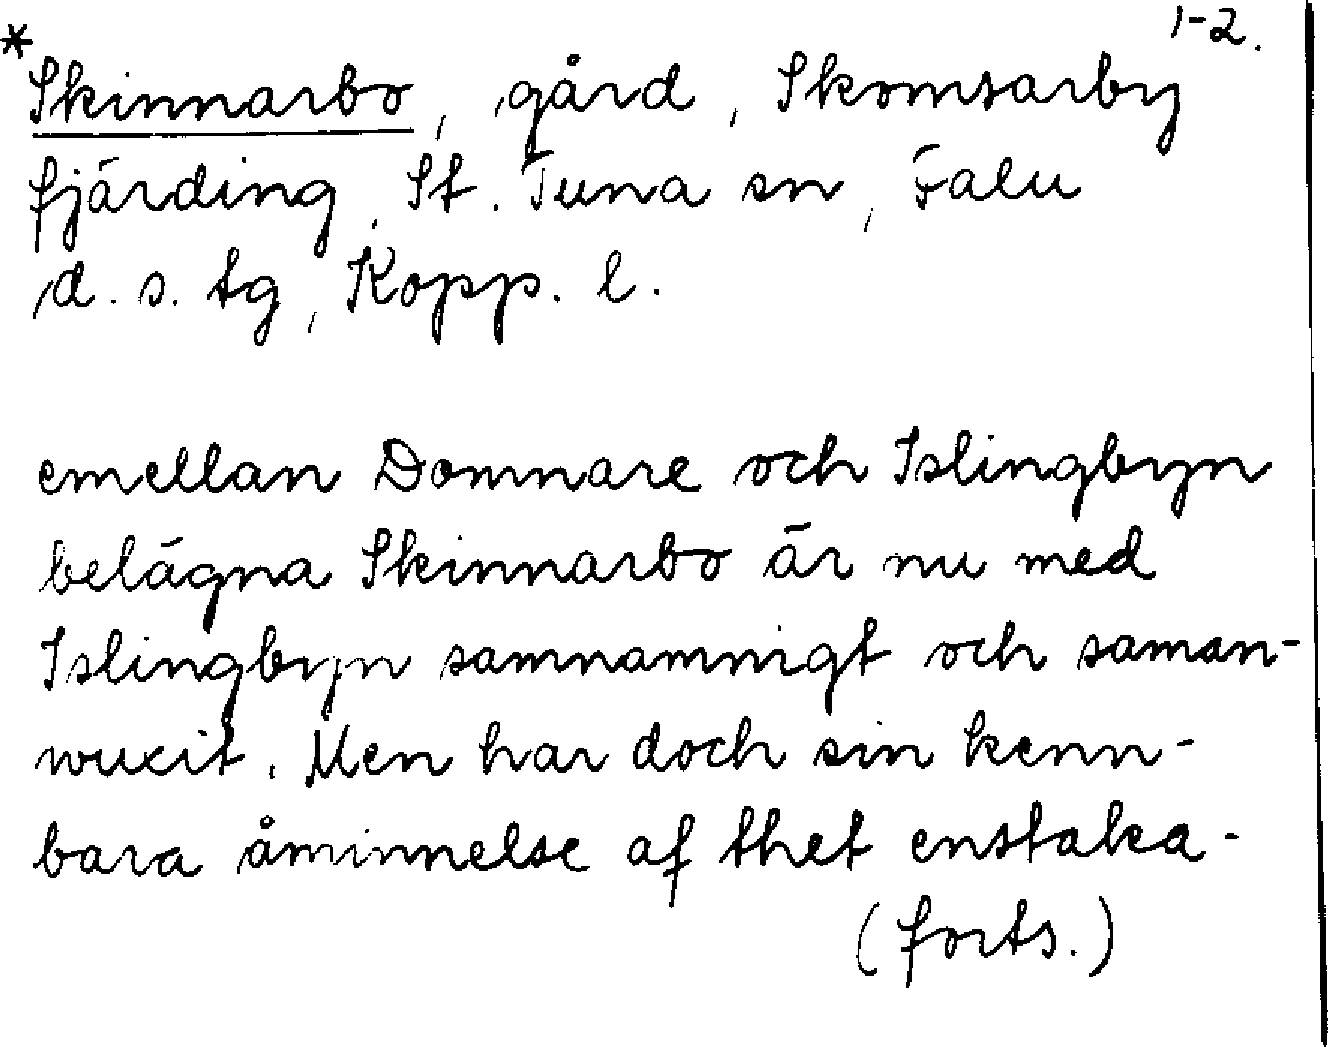 1-2.
*Skinnarbo, gård, Skomsarby
fjärding, St. Tuna sn, Falu
d. s. tg, Kopp. l.
emellan Domnare och Islingbyn
belägna Skinnarbo är nu med
Islingbyn samnamnigt och saman-
wuxit. Men har doch sin kenn-
bara åminnelse af thet enstaka-
(forts.)